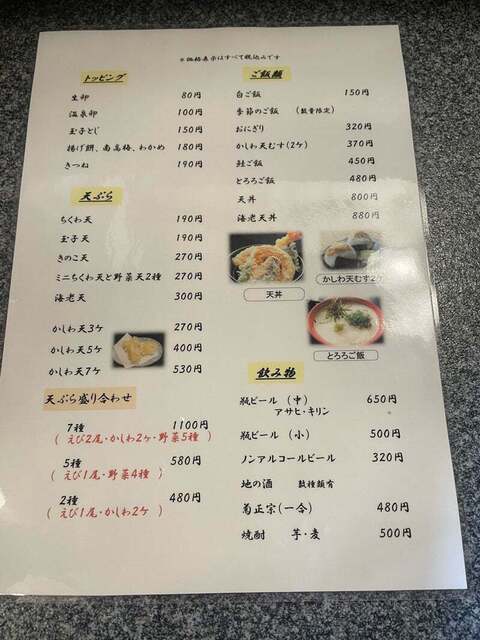 ※価格表示はすべて税込みです
トッピング
生卵 80円
温泉卵 100円
玉子とじ 150円
揚げ餅、南高梅、わかめ 180円
きつね 190円
天ぷら
ちくわ天 190円
玉子天 190円
きのこ天 270円
ミニちくわ天と野菜天2種 270円
海老天 300円
かしわ天3ケ 270円
かしわ天5ケ 400円
かしわ天7ケ 530円
天ぷら盛り合わせ
7種 1100円
(えび2尾・かしわ2ケ・野菜5種)
5種 580円
(えび1尾・野菜4種)
2種 480円
(えび1尾・かしわ2ケ)
ご飯類
白ご飯 150円
季節のご飯 (数量限定)
おにぎり 320円
かしわ天むす(2ケ) 370円
鮭ご飯 450円
とろろご飯 480円
天丼 800円
海老天丼 880円
天丼
かしわ天むす2ケ
とろろご飯
飲み物
瓶ビール (中) 650円
アサヒ・キリン
瓶ビール (小) 500円
ノンアルコールビール 320円
地の酒 数種類有
菊正宗(一合) 480円
焼酎 芋・麦 500円